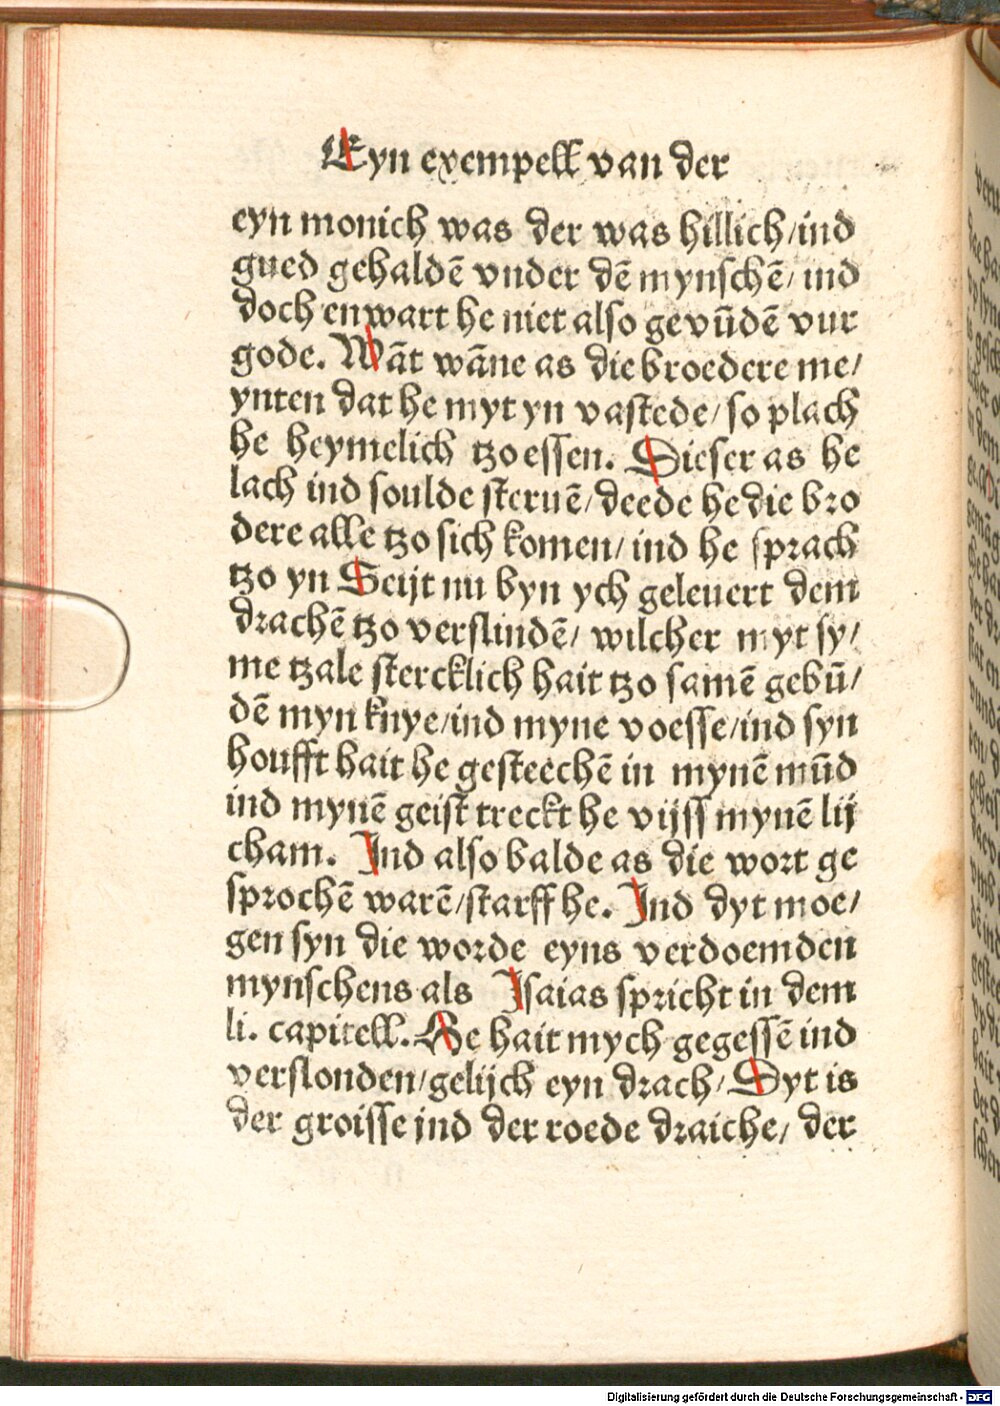 Eyn exempell van der
eyn monich was der was hillich/ind
gued gehaldē vnder dē mynschē/ ind
doch enwart he niet also gevūdē vur
gode. Wāt wāne as die broedere me/
ynten dat he myt yn vastede/ so plach
he heymelich tzo essen. Dieser as he
lach ind soulde steruē/ deede he die bro
dere alle tzo sich komen/ ind he sprach
tzo yn Seijt nu byn ych geleuert dem
drachē tzo verslindē/ wilcher myt sy/
me tzale stercklich hait tzo samē gebū/
dē myn knye/ind myne voesse/ind syn
houfft hait he gesteechē in mynē mūd
ind mynē geist treckt he vijss mynē lij
cham. Ind also balde as die wort ge
sprochē warē/starff he. Ind dyt moe/
gen syn die worde eyns verdoemden
mynschens als Isaias spricht in dem
li. capitell. He hait mych gegessē ind
verslonden/gelijch eyn drach/ Dyt is
der groisse ind der roede draiche/ der
Digitalisierung gefördert durch die Deutsche Forschungsgemeinschaft - DFG